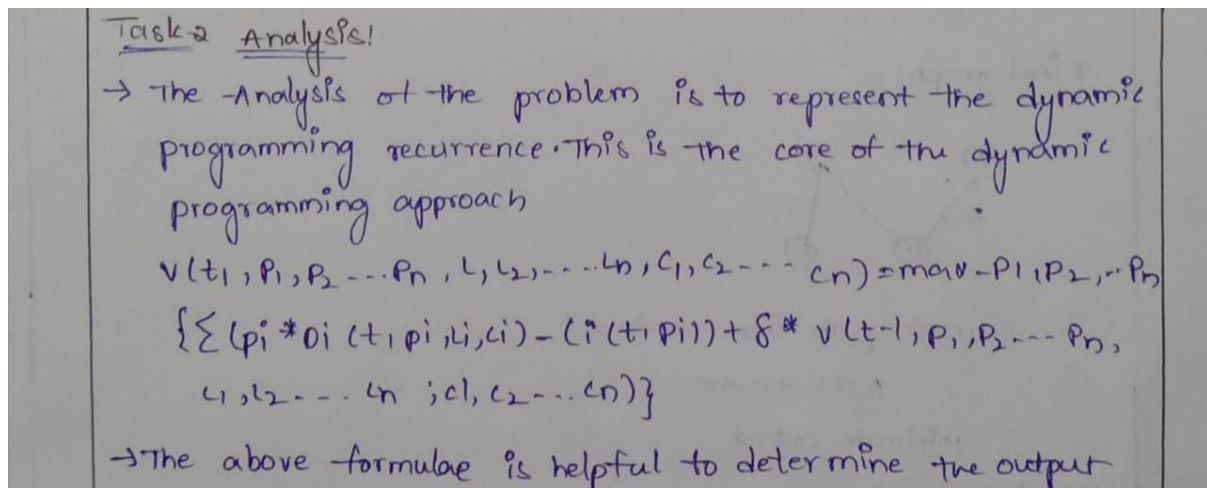 Task-2 Analysis!
→ The Analysis of the problem is to represent the dynamic
programming recurrence. This is the core of the dynamic
programming approach
V(t1, P1, P2 ---- Pn, L, L2, ---- Ln, C1, C2 --- Cn) = max - P1, P2, -- Pn
{Σ (pi * Di (t, pi, Li, Ci) - Ci (t, Pi)) + δ * V (t-1, P1, P2 --- Pn,
L1, L2 - - - Ln ; C1, C2 --.. Cn)}
→ The above formulae is helpful to determine the output